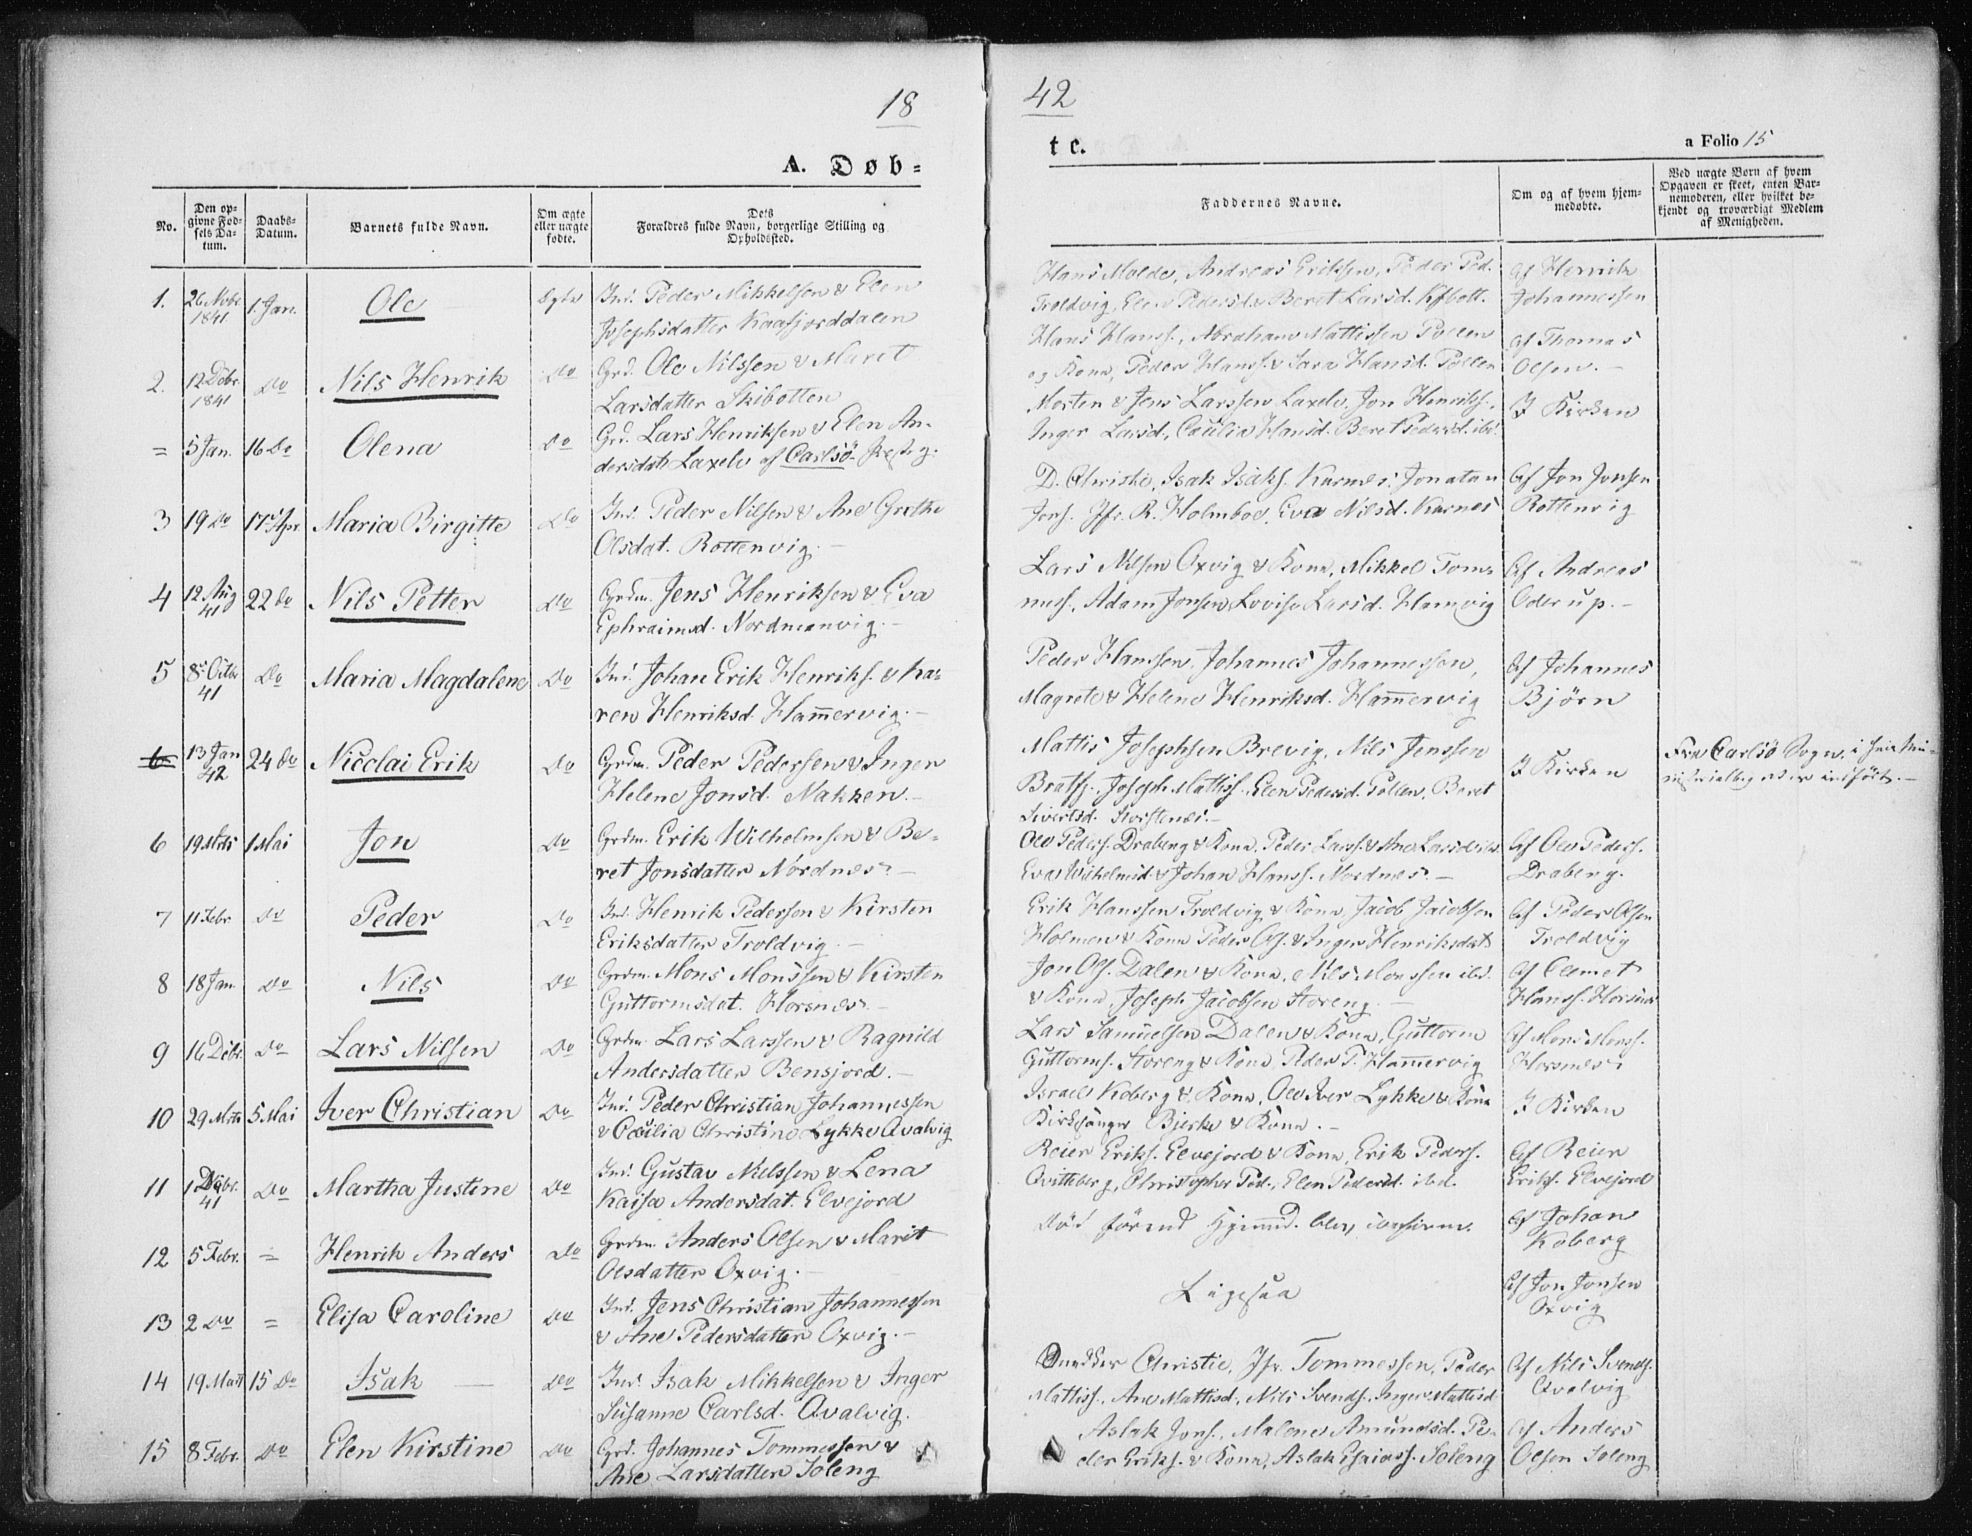 18
42
A. Døb=
t e.
a Folio 15
No.
Den op-
givne Fød-
sels Da-
tum.
Daabs-
Datum.
Barnets fulde Navn.
Om ægte
eller uægte
fødte.
Dets
Forældres fulde Navn, borgerlige Stilling og
Opholdssted.
Faddernes Navne.
Om og af hvem hjem-
medøbte.
Ved uægte Børn af hvem
Opgaven er skeet, enten Bar-
nemoderen, eller hvilket be-
kjendt og troværdigt Medlem
af Menigheden.
1. 26 Novbr 1841 1 Jan. Ole Ægte Ind. Peder Mikkelsen & Elen
Josephsdatter Kaafjorddalen
Hans Molde, Andreas Eriksen, Peder Ped.
Troldvig, Elen Pedersd. & Beret Larsd.
Af Henrik
Johannessen
2. 12 Debr. 1841 Do Nils Henrik Do Grd. Ole Nilssen & Maret
Larsdatter Skibotten
Hans Hanss., Abrahams Mattissen Pollen
og Kone, Peder Hanss. & Sara Hansd. Pollen
Af Thomas
Olsen.
= 5 Jan. 16 Do Olena Do Grd. Lars Henriksen & Elen An-
dersdatt. Laxelv af Carlsö Prestg.
Morten & Jens Larssen Laxelv, Jon Henriks.,
Inger Larsd., Cæcilia Hansd. Beret Pedersd. ibd.
I Kirken
3 19 Do 17 Apr Maria Birgitte Do Ind. Peder Nilsen & Ane Grethe
Olsdat. Rottenvig.
D. Christie, Isak Isaks. Karnes, Jonatan
Jons. Jfr. R. Holmboe, Eva Nilsd. Karnes
Af Jon Jonsen
Rottenvig
4 12 Aug 41 22 do Nils Petter Do Grdm. Jens Henriksen & Eva
Ephraimsd. Nordmanvig.
Lars Nilsen Oxvig & Kone, Mikkel Tom-
mess., Adam Jonsen, Lovise Larsd. Hamvig
Af Andreas
Oderup.
5 8 Octbr 41 Do Maria Magdalene Do Ind. Johan Erik Henriks. & Ka-
ren Henriksd. Hammervig.
Peder Hanssen, Johannes Johannessen,
Magrete & Helene Henriksd. Hammervig
Af Johannes
Björn
6 13 Jan 42 24 do Nicolai Erik Do Grdm. Peder Pedersen & Inger
Helene Jonsd. Nakken.
Mattis Josephsen Brevig, Nils Jenssen
Bratfj., Joseph Mattiss., Elen Pedersd. Pollen, Beret
Sivertsd. Storstenes.
I Kirken
Fra Carlsö Sogn, i hvis Mi-
nisterialbog er indført.
6 19 Mrts 1 Mai Jon Do Grdm. Erik Wilhelmsen & Be-
ret Jonsdatter Nordnes.
Ole Peders. Draberg & Kone, Peder Larss. & Ane Larsd. ibd.
Eva Wilhelmsd. & Johan Hanss. Nordnes.
Af Ole Peders.
Draberg.
7 11 Febr Do Peder Do Ind. Henrik Pedersen & Kirsten
Eriksdatter Troldvig.
Erik Hanssen Troldvig & Kone, Jacob Jacobsen
Holmen & Kone Peder Ols. & Inger Henriksdat
Af Peder Olsen
Troldvig
8 18 Jan Do Nils Do Grdm. Mons Monssen & Kirsten
Guttormsdat. Horsnes.
Jon Ols. Dalen & Kone, Nils Monssen ibd.
& Kone, Joseph Jacobsen Storeng.
Af Clemet
Hanss. Horsnes
9 16 Debr. Do Lars Nilsen Do Grdm. Lars Larssen & Ragnild
Andersdatter Bensjord.
Lars Samuelsen Dalen & Kone, Guttorm
Guttorms. Storeng & Kone, Peder P. Hammervig
Af Mons Monss.
Horsnes.
10 29 Mrts 5 Mai Iver Christian Do Ind. Peder Christian Johannessen
& Cæcilia Christine Lykke Qvalvig
Israel Koberg & Kone, Ole Iver Lykke & Kone
Kirkesanger Bierke & Kone.
I Kirken
11 1 Debr. 41 Do Martha Justine Do Ind. Gustav Nielssen & Lena
Kaisa Andersdat. Elvejord
Reier Eriks. Elvejord & Kone, Erik Peders.
Qvitteberg, Christopher Ped., Elen Pedersd. ibd.
Af Reier
Eriks. Elvejord
12 5 Febr. = Henrik Anders Do Grdm. Anders Olsen & Marit
Olsdatter Oxvig.
Död förend Hjemmed. blev confirm.
Af Johan
Koberg
13 2 Do = Elisa Caroline Do Ind. Jens Christian Johannessen
& Ane Pedersdatter Oxvig.
Ligesaa
Af Jon Jonsen
Oxvig
14 19 Mart 15 Do Isak Do Ind. Isak Mikkelsen & Inger
Susanne Carlsd. Qvalvig.
Christie, Jfr. Tommessen, Peder
Mattiss., Ane Mattisd., Nils Svends., Inger Mattisd
Af Nils Svends.
Qvalvig
15 8 Febr. Do Elen Kirstine Do Grd. Johannes Tommessen &
Ane Larsdatter Soleng
Aslak Jons., Malene Amundsd. Pe-
der Eriks. & Kone, Aslak Esaiass. Soleng
Af Anders
Olsen Soleng